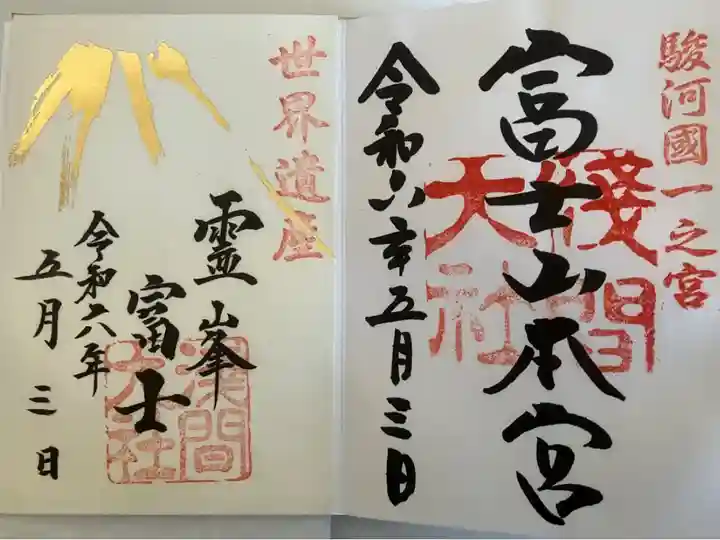 駿河國一之宮
富士山本宮
淺間
大社
令和六年五月三日
世界遺産
靈峯
富士
淺間
大社
令和六年
五月三日